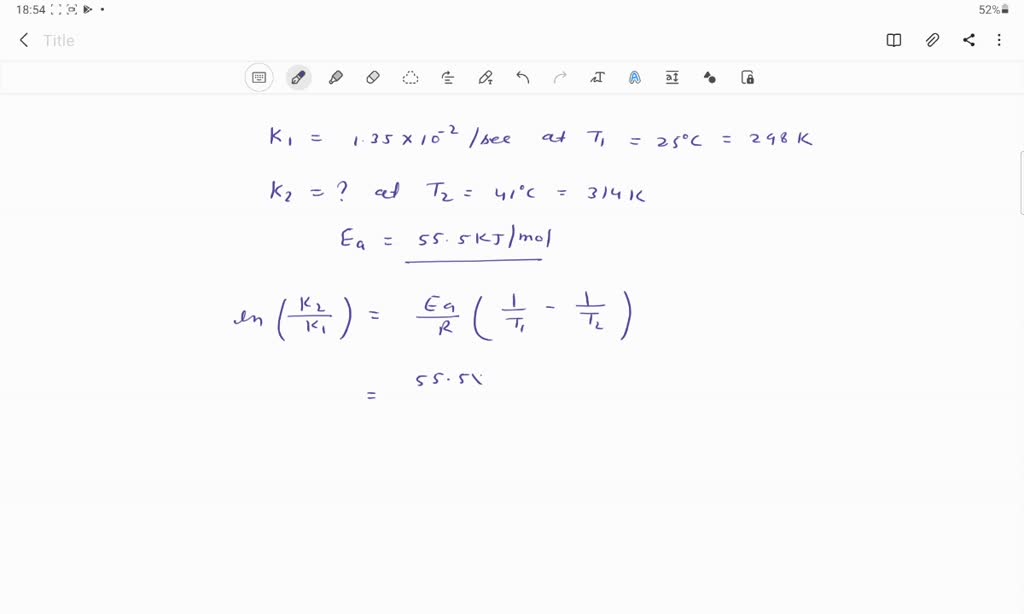 18:54
52%
Title
K₁ = 1.35 × 10⁻² /sec at T₁ = 25°C = 298 K
K₂ = ? at T₂ = 41°C = 314 K
Ea = 55.5 KJ/mol
ln (K₂/K₁) = Ea/R (1/T₁ - 1/T₂)
= 55.5